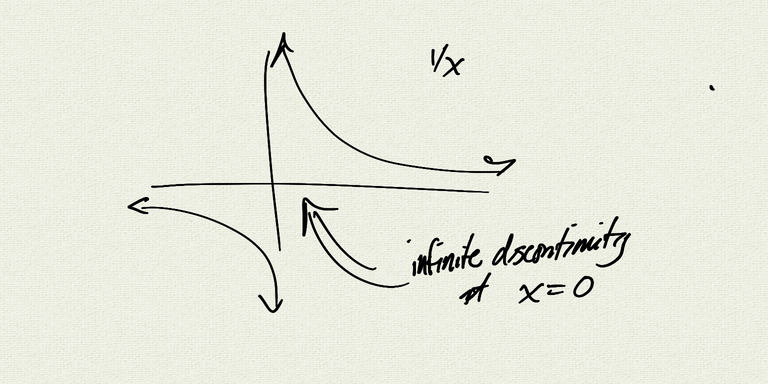 1/x
infinite discontinuity
at x=0